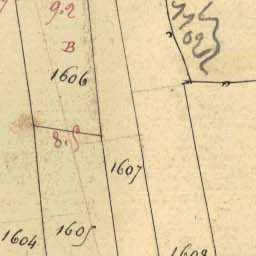 9.2
B
1606
8.5
1607
1605
1604
1608